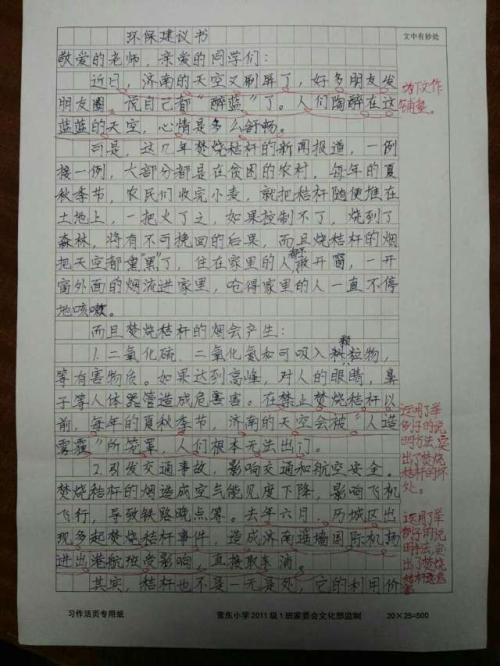 环保建议书
文中有妙处
敬爱的老师,亲爱的同学们:
近日,济南的天空又刷屏了,好多朋友发
朋友圈,说自己都“醉蓝”了。人们陶醉在这
蓝蓝的天空,心情是多么舒畅。
为下文作
铺垫。
可是,这几年焚烧秸秆的新闻报道,一例
接一例,大部分都是在贫困的农村,每年的夏
秋季节,农民们收完小麦,就把秸秆随便堆在
土地上,一把火了之,如果控制不了,烧到了
森林,将有不可挽回的后果,而且烧秸秆的烟
把天空都熏黑了,住在家里的人都不敢开窗,一开
窗外面的烟流进家里,呛得家里的人一直不停
地咳嗽。
而且焚烧秸秆的烟会产生:
1.二氧化硫、二氧化氮和可吸入颗粒物,
等有害物质。如果达到高峰,对人的眼睛,鼻
子等人体器管造成危害害。在禁止焚烧秸秆以
前,每年的夏秋季节,济南的天空会被“人造
雾霾”所笼罩,人们根本无法出门。
运用了举
例子的说
明方法,写
出了焚烧
秸秆的坏
处。
2.引发交通事故,影响交通和航空安全。
焚烧秸秆的烟造成空气能见度下降,影响飞机
飞行,导致铁路晚点等。去年六月,历城区出
现多起焚烧秸秆事件,造成济南遥墙国际机场
进出港航班受影响,直接取消。
运用了举
例子的说
明方法,写
出了焚烧
其实,秸秆也不是一无是处,它的利用价
习作活页专用纸
营东小学2011级1班家委会文化部监制
20×25=500